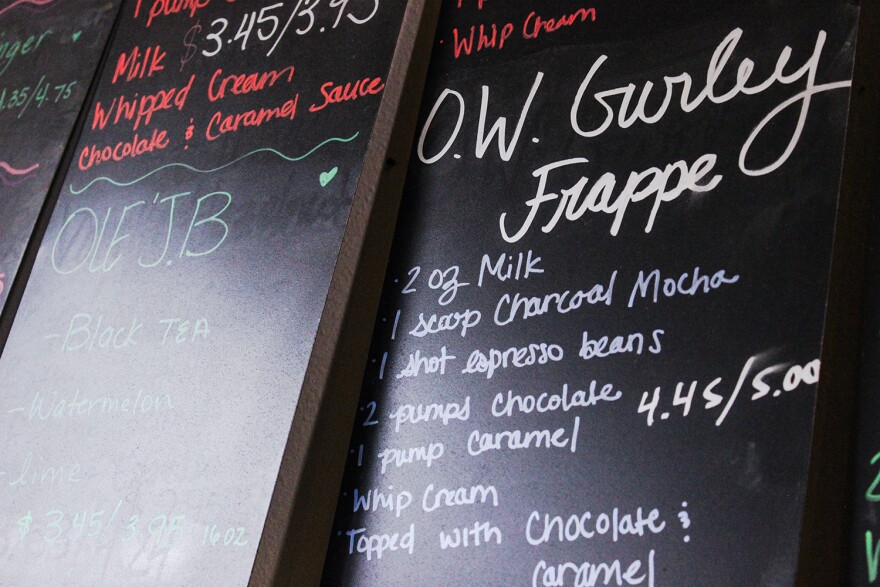 4.35/4.75
1 pump
Milk $3.45/3.95
Whipped Cream
Chocolate & Caramel Sauce
OLE 'J.B
-Black TEA
-Watermelon
-lime
$3.45/3.95 16oz
· Whip Cream
O.W. Gurley
Frappe
· 2 oz Milk
· 1 scoop Charcoal Mocha
· 1 shot espresso beans
· 2 pumps chocolate 4.45/5.00
· 1 pump caramel
· Whip Cream
· Topped with Chocolate &
caramel